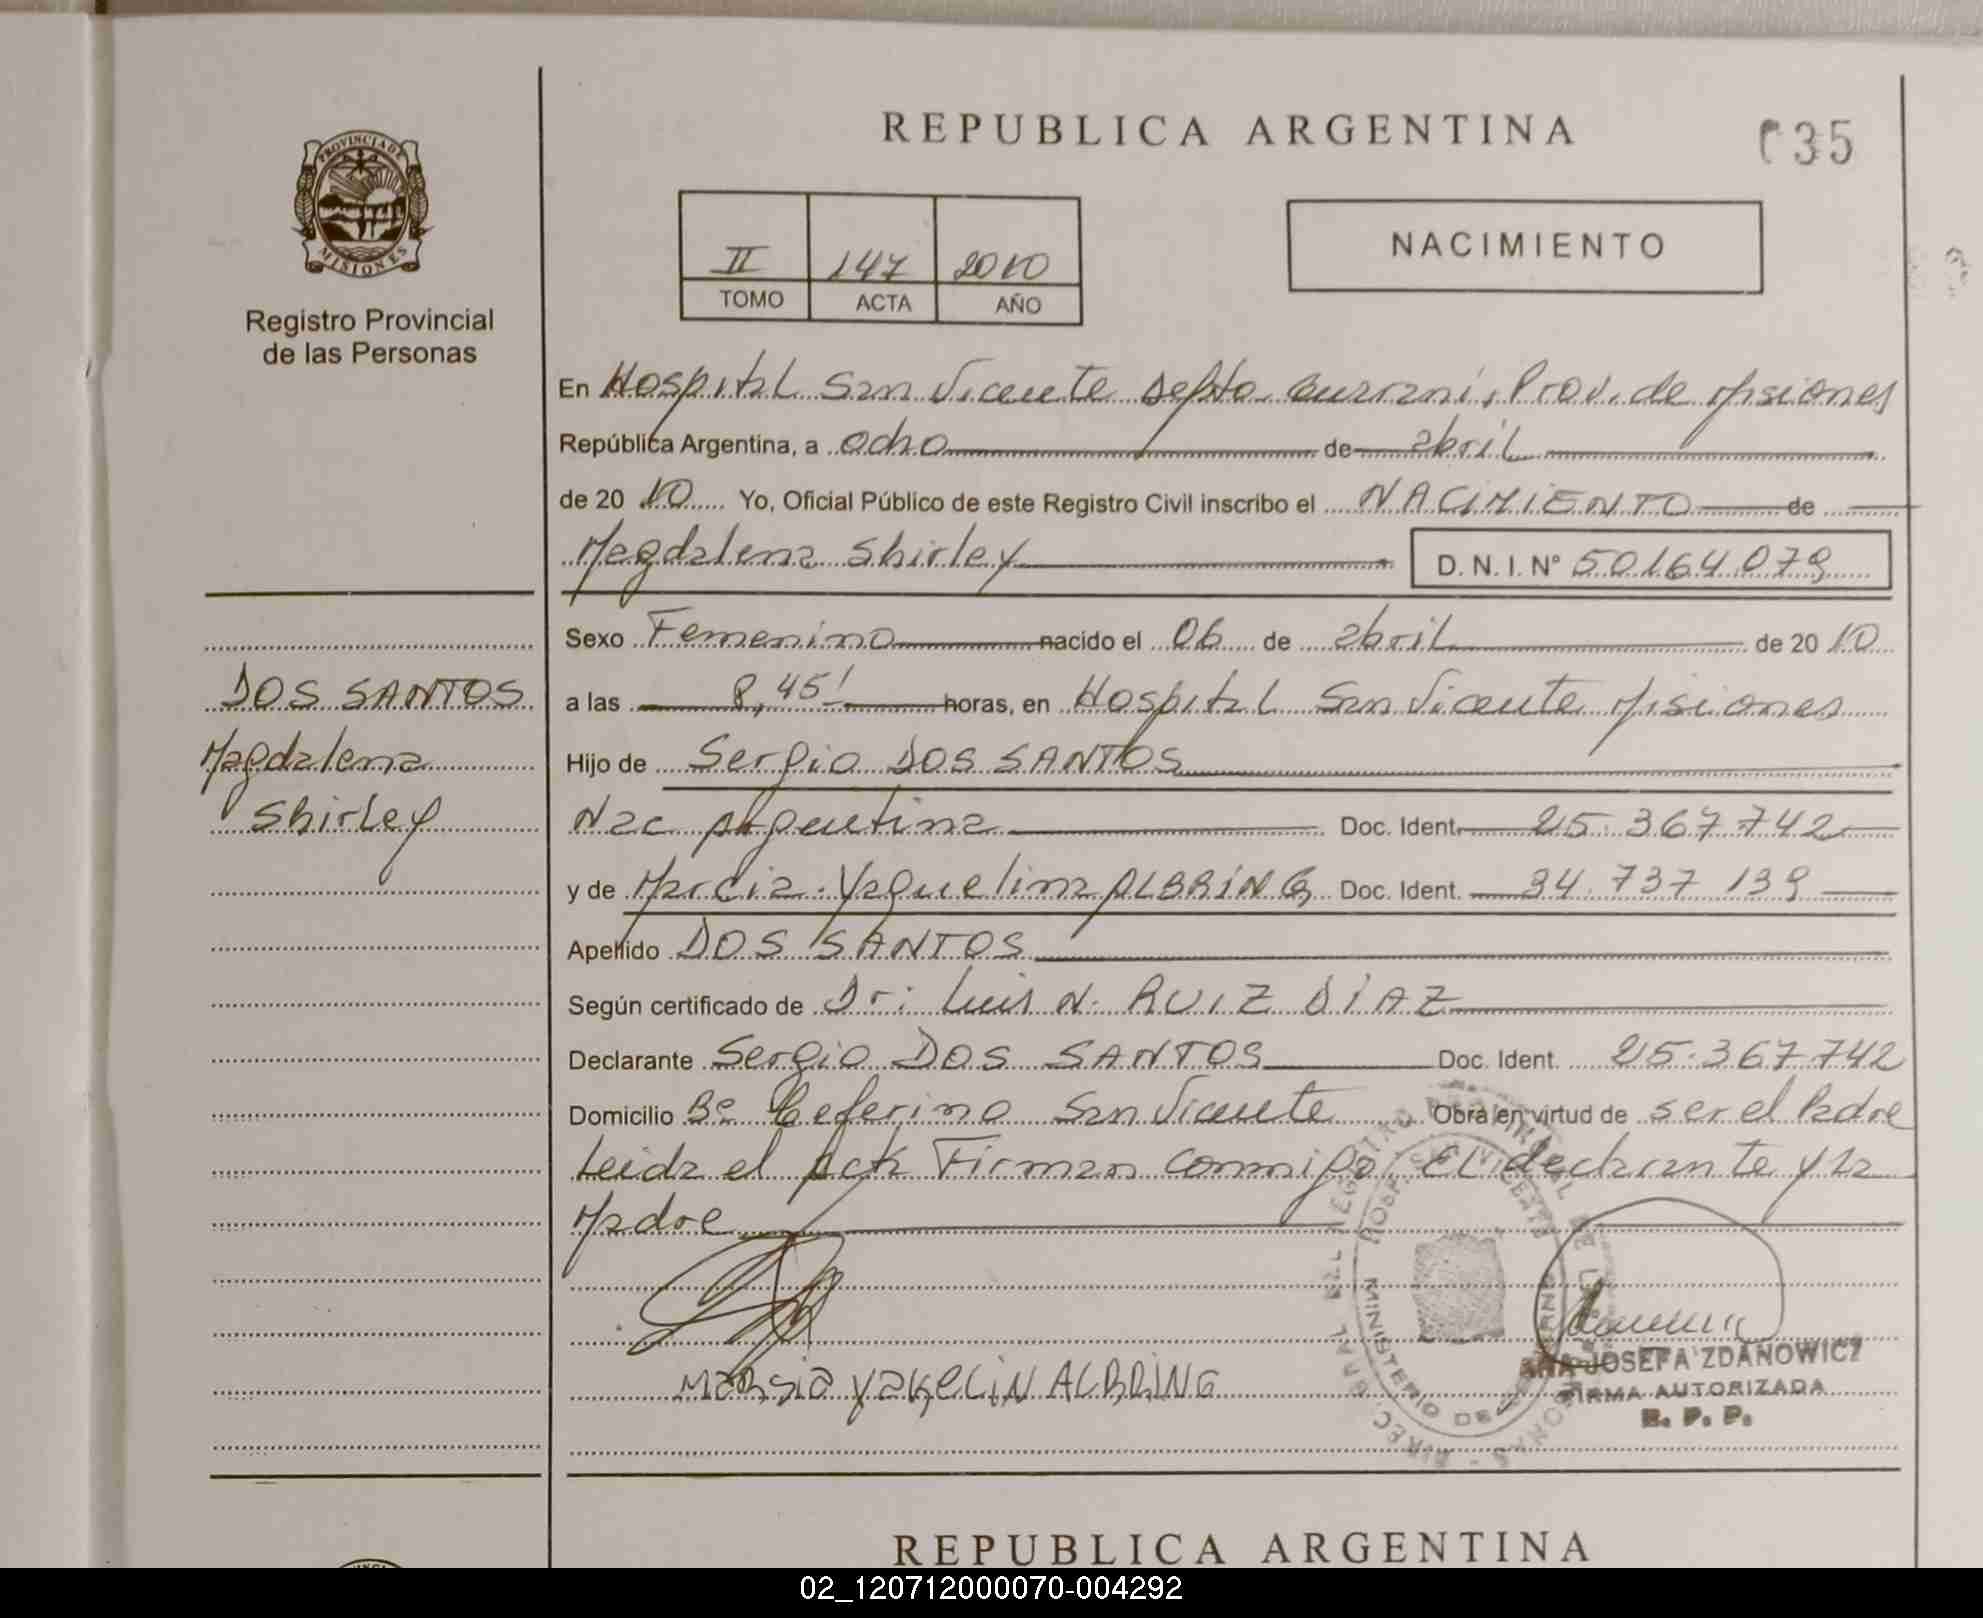 REPUBLICA ARGENTINA
035
PROVINCIA DE MISIONES
Registro Provincial
de las Personas
II 147 2010
TOMO ACTA AÑO
NACIMIENTO
En Hospital San Vicente Depto Guarani, Prov. de Misiones
República Argentina, a ocho de abril
de 20 10 Yo, Oficial Público de este Registro Civil inscribo el NACIMIENTO de
Magdalena Shirley D.N.I. Nº 50164079
Sexo Femenino nacido el 06 de abril de 20 10
a las 8,45' horas, en Hospital San Vicente Misiones
Hijo de Sergio DOS SANTOS
Nac Argentina Doc. Ident. 25.367742
y de Marcia Yaquelina ALBRING Doc. Ident. 34.737 139
Apellido DOS SANTOS
Según certificado de Dr: Luis N. RUIZ DIAZ
Declarante Sergio DOS SANTOS Doc. Ident. 25.367742
Domicilio Bº Ceferino San Vicente Obra en virtud de ser el Padre
Leida el Acta Firman conmigo El declarante y La
Madre
DOS SANTOS
Magdalena
Shirley
MaRsia YaKeLiN ALBRiNG
ANA JOSEFA ZDANOWICZ
FIRMA AUTORIZADA
R. P. P.
MINISTERIO DE GOBIERNO
REPUBLICA ARGENTINA
02_120712000070-004292